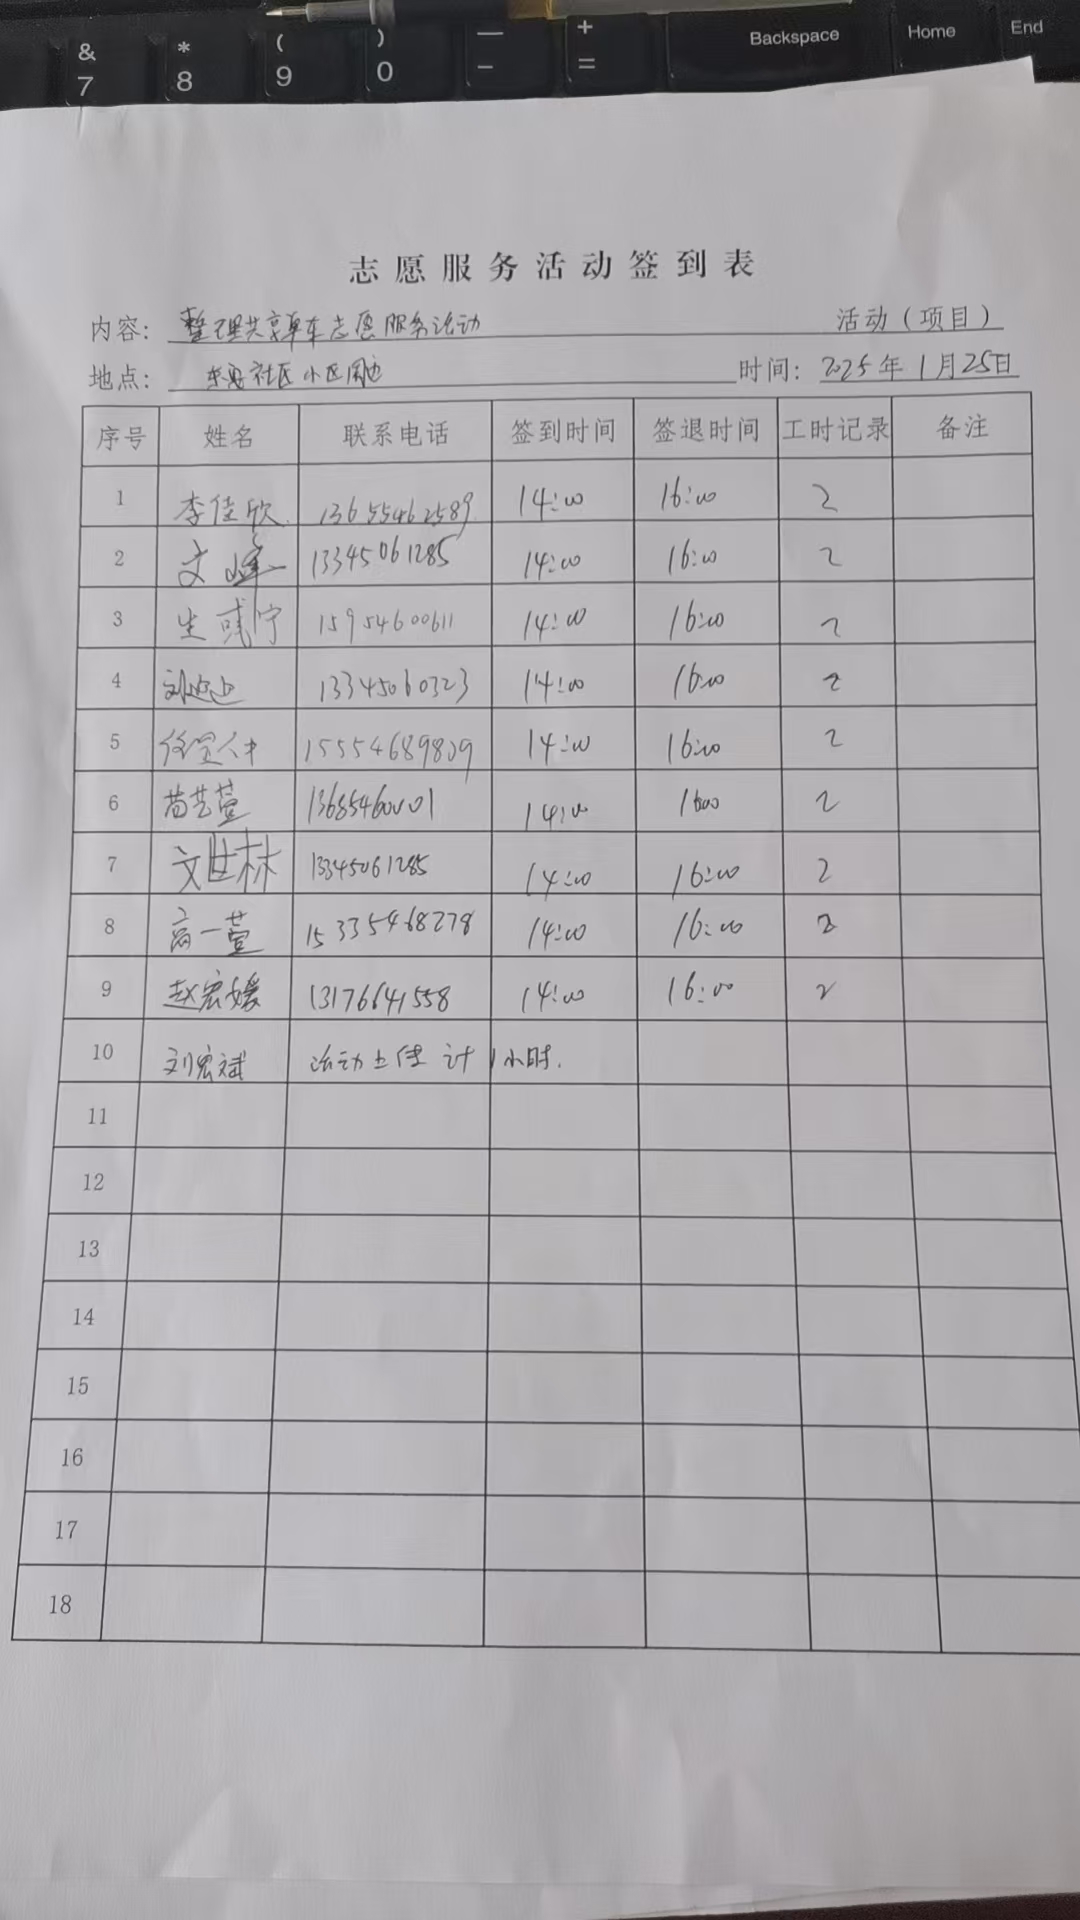 & 7 * 8 ( 9 ) 0 — - + = Backspace Home End
志愿服务活动签到表
内容: 整理共享单车志愿服务活动 活动（项目）
地点: 社区小区周边 时间: 2025年1月25日
序号 姓名 联系电话 签到时间 签退时间 工时记录 备注
1 李佳欣 13655462589 14:00 16:00 2
2 文峰 13345061285 14:00 16:00 2
3 生彧宁 15954600611 14:00 16:00 2
4 刘 13345060323 14:00 16:00 2
5 15554689809 14:00 16:00 2
6 苗艺萱 13685460001 14:00 1600 2
7 文世林 13345061285 14:00 16:00 2
8 高一萱 15335468278 14:00 16:00 2
9 赵宏媛 13176641558 14:00 16:00 2
10 刘宏斌 活动上传 计1小时.
11
12
13
14
15
16
17
18